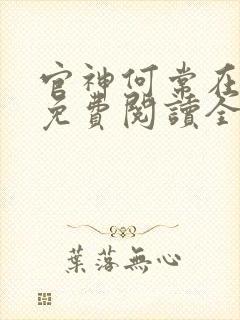 官神何常在
免費閱讀全
葉落無心